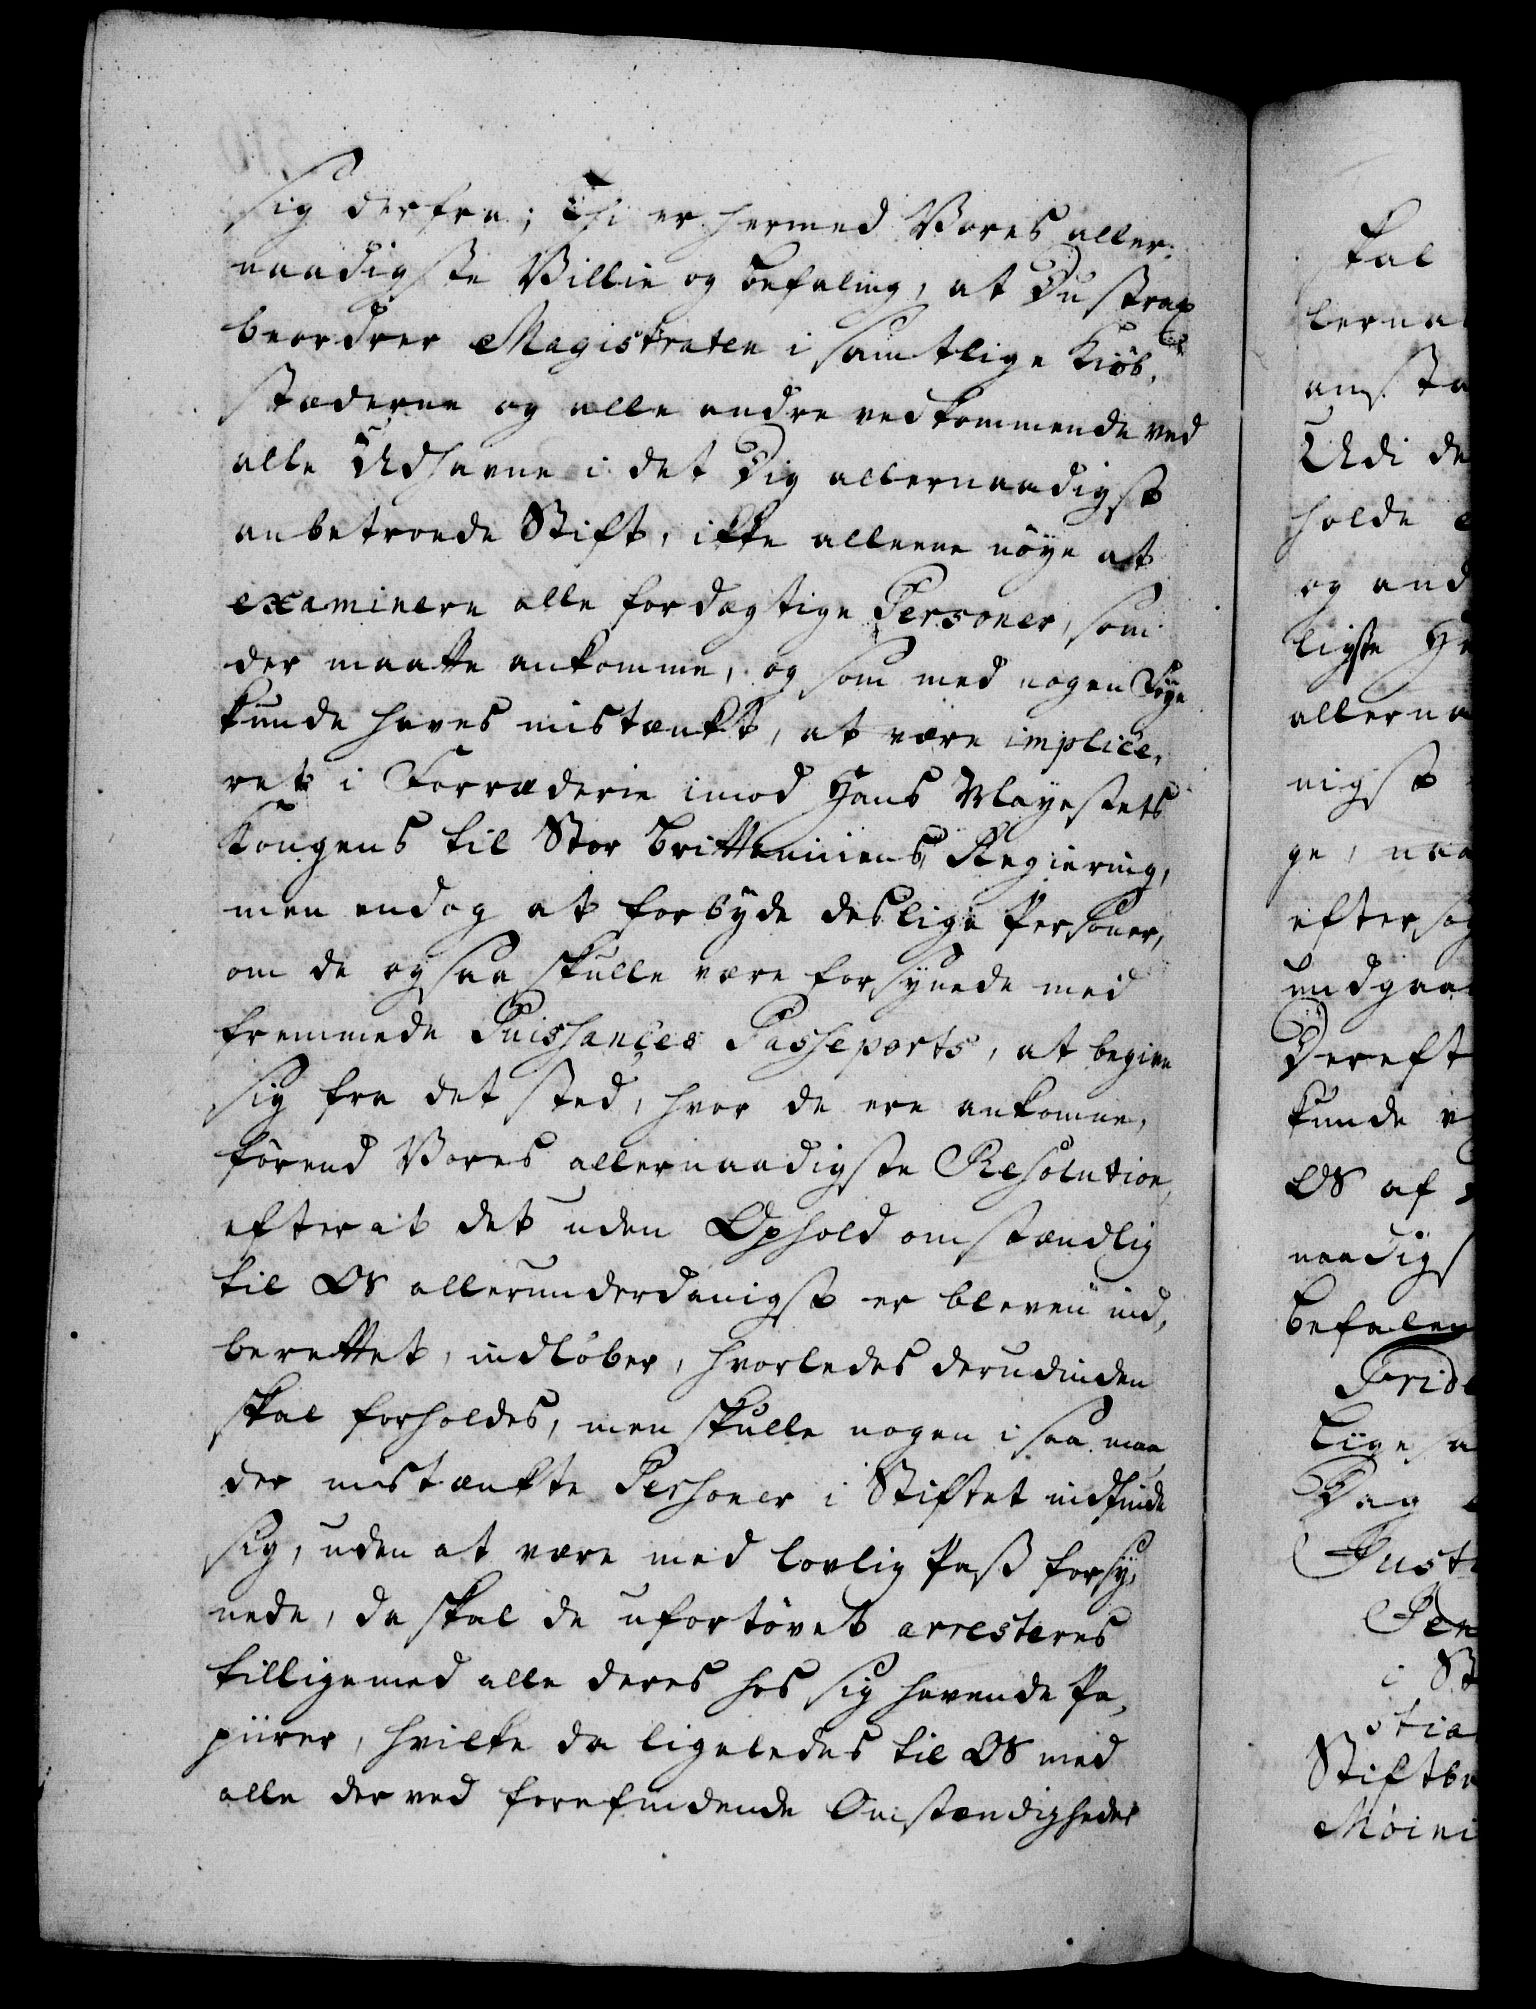 sig derfra; Thi er hermed Vores aller-
naadigste Villie og befaling, at Du strax
beordrer Magistraten i samtlige Kiöb-
stæderne og alle andre vedkommende ved
alle Udhavne i det Dig allernaadigst
anbetroede Stift, ikke alleene nöye at
examinere alle fordægtige Personer, som
der maatte ankomme, og som med nogen Föye
kunde haves mistænkt, at være implice-
ret i Forræderie imod Hans Mayestets
Kongens til Stor Brittanniens Regiering,
men endog at forbyde deslige Personer,
om de ogsaa skulle være forsynede med
fremmede Puissances Passeports, at begive
sig fra det sted, hvor de ere ankomne,
förend Vores allernaadigste Resolution,
efter at det uden Ophold omstændlig
til Os allerunderdanigst er bleven ind-
berettet, indlöber, hvorledes derudinden
skal forholdes, men skulle nogen i saa maa
der mistænkte Personer i Stiftet indfinde
sig, uden at være med lovlig Pass forsy-
nede, da skal de ufortövet arresteres
tilligemed alle deres hos sig havende Pa-
piirer, hvilke da ligeledes til Os med
alle derved forefindende Omstændigheder
skal
lerna
ansta
Udi de
holde
og and
ligste He
allerna
nigst
ge, naa
eftersog
undgaa
Dereft
kunde v
Os af
naadigs
befalen
Frid
Ligesa
Dag
Justi
Pen
i St
stia
Stiftbe
Möini